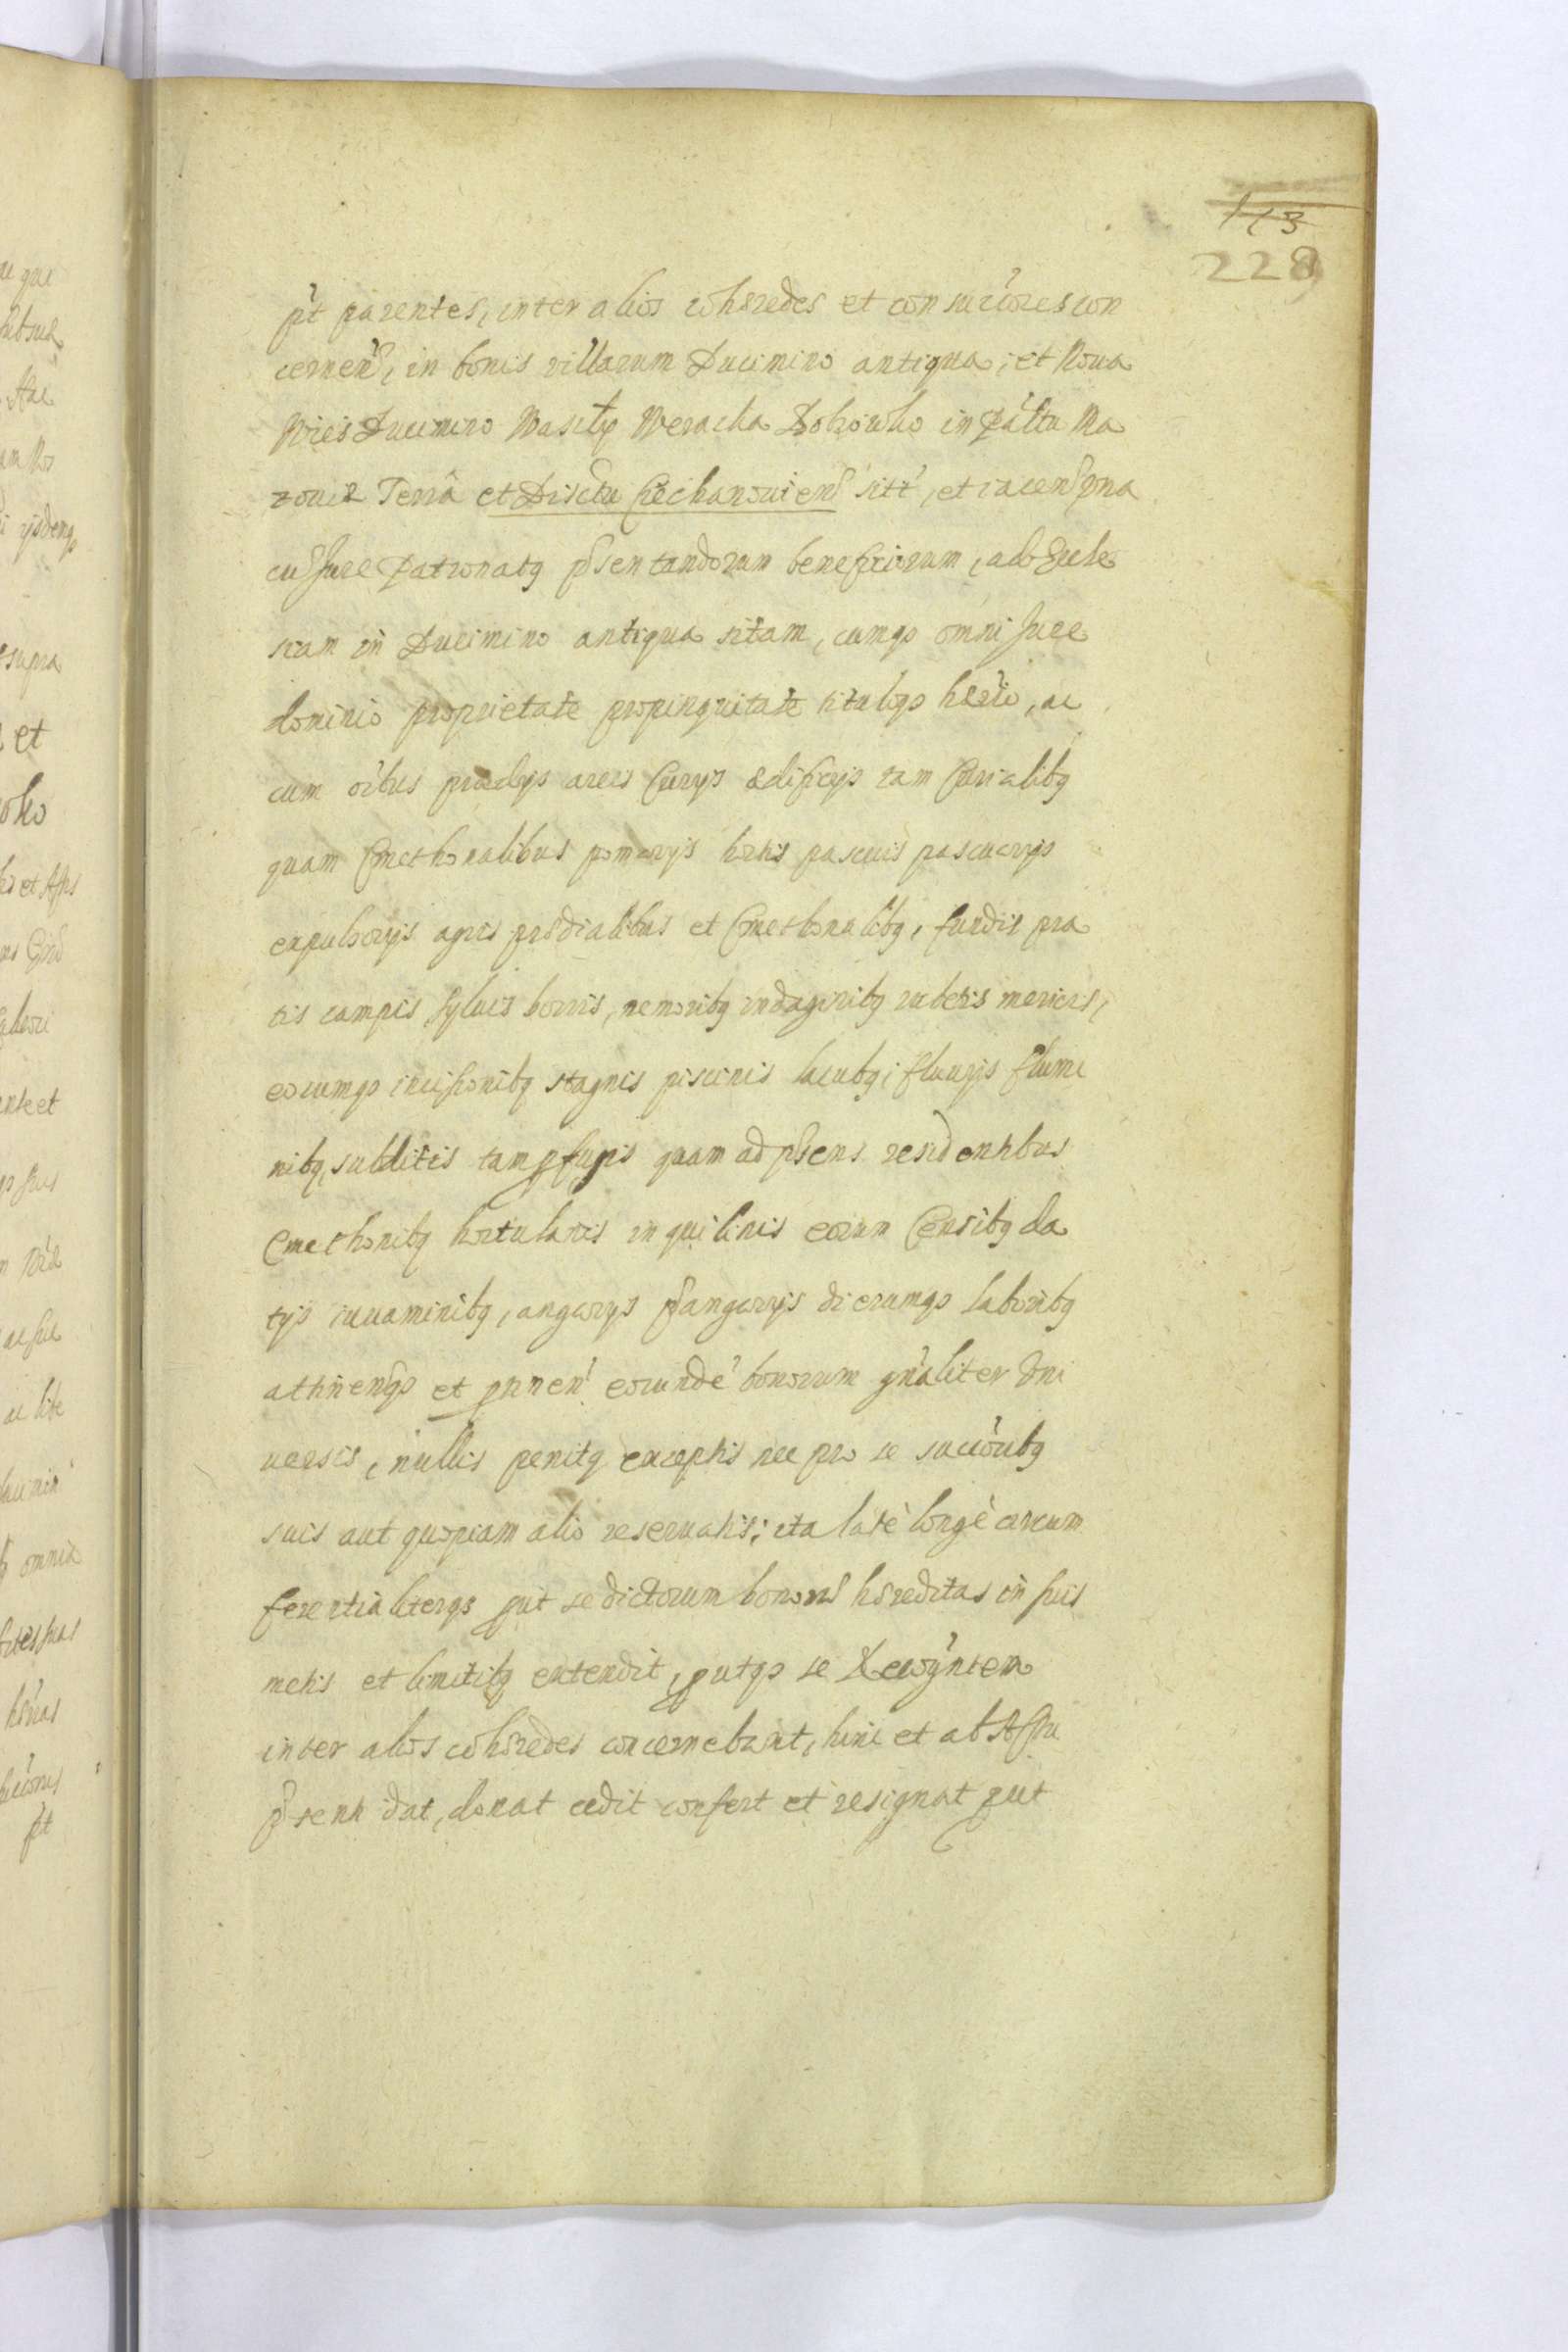 113
228
pt parentes, inter alios cohæredes et consuccores con
cernen, in bonis villarum Ducimino antiqua, et Noua
Wies Ducimino Wasily Weracka Sokowko in Pāttu Ma
zouiæ Terrâ et Distctu Ciechanouien sitt, et iacen una
cu Jure Patronatq pñsentandorum beneficiorum, ad Eccle
siam in Ducimino antiqua sitam, cumqs omni Jure
dominio proprietate propinquitate tituloqs hærio, ac
cum oibus prædijs areis Curijs ædificijs tam Curialibq
quam Cmethonalibus pomarijs hortis pascuis pascuarijs
expulsorijs agris prædialibus et Cmethonalibq, fundis pra
tis campis, syluis borris, nemoribq indaginibq rubetis mericis,
eorumqs incisionibq stagnis piscinis lacubq, fluuijs flumi
nibq, subditis tam pfugis quam ad pñsens residentibus
Cmethonibq hortulanis inquilinis eorum Censibq da
tijs iuuaminibq, angarijs pangarijs dierumqs laboribq
attinenqs et ptinen eorunde bonorum gnāliter Uni
uersis, nullis penitq exceptis nec pro se succoribq
suis aut quopiam alio reseruatis; ita late longe circum
ferentialiterqs put se dictorum bonorū hæreditas in suis
metis et limitibq extendit, putqs se
inter alios cohæredes concernebant, hinc et ab
pñsenti dat, donat cedit confert et resignat put